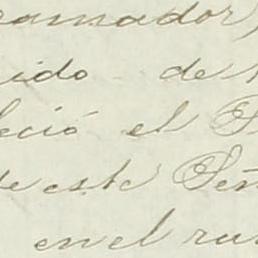 camador,
ido de
leció el
de este Señ
en el ru